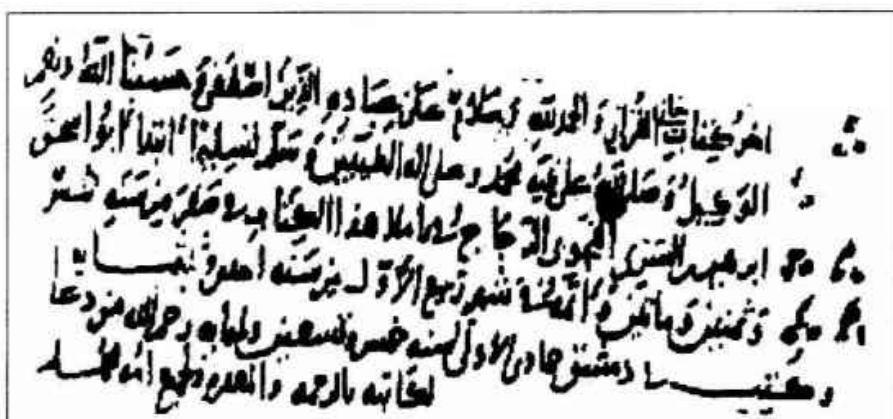 اخر كتاب القران والحمد لله وسلام على عباده الذين اصطفى حسبنا الله ونعم
الوكيل وصلى الله على نبيه محمد وعلى اله الطيبين وسلم تسليما ابتدا ابو اسحق
ابرهيم بن السري النحوي الزجاج باملا هذا الكتاب في صفر من سنه خمس
وثمنين وماتين واتمه في شهر ربيع الاول من سنه احدى وثلثمايه
وكتب بدمشق جمادى الاولى لسنه خمس وتسعين وثلثمايه رحم الله من دعا
لكاتبه بالرحمه والمغفره ولجميع امه محمد